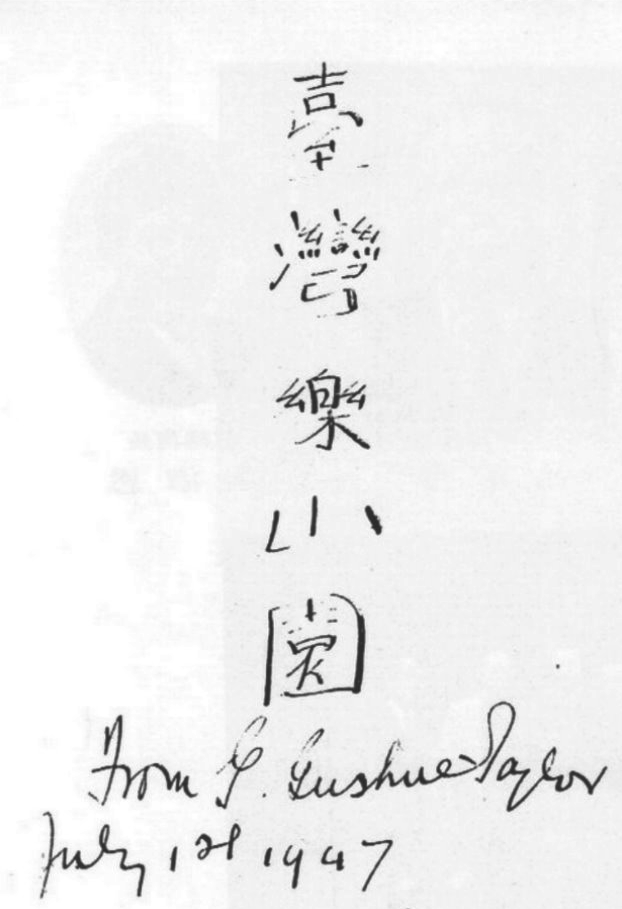 臺灣樂小園
From G. Gushue-Taylor
July 1st 1947